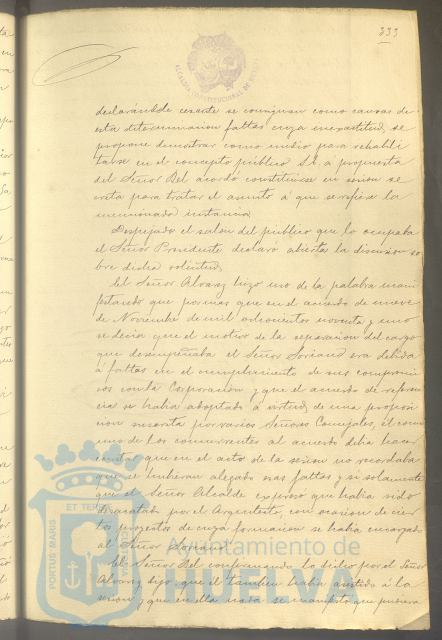 333
ALCALDIA CONSTITUCIONAL DE HUELVA
declarándole cesante se consignan como causas de
esta determinacion faltas cuya inexactitud, se
propone demostrar como medio para rehabili
tarse en el concepto público S.E. a propuesta
del Señor Bel acordó constituirse en sesion se
creta para tratar el asunto á que se refiere la
mencionada instancia
Despejado el salon del público que lo ocupaba
el Señor Presidente declaró abierta la discusion so
bre dicha solicitud,
El Señor Alvarez hizo uso de la palabra mani
festando que por mas que en el acuerdo de nueve
de Noviembre de mil ochocientos noventa y uno
se decia que el motivo de la separacion del cargo
que desempeñaba el Señor Soriano era debida
á faltas en el cumplimiento de sus compromi
sos con la Corporacion y que el acuerdo de referen
cia se habia adoptado á virtud, de una proposi
cion suscrita por varios Señores Concejales, él como
uno de los concurrentes al acuerdo debia hacer
constar que en el acto de la sesion no recordaba
que se hubieran alegado esas faltas y si solamente
que el Señor Alcalde expresó que habia sido
por el Arquitecto, con ocasion de cier
tos proyectos de cuya formacion se habia encargado
al Señor Soriano
El Señor Bel confirmando lo dicho por el Señor
Alvarez dijo que el tambien habia asistido á la
sesion y que en ella nada se manifestó que pudiera
PORTUS MARIS ET TERRÆ
Ayuntamiento de
HUELVA